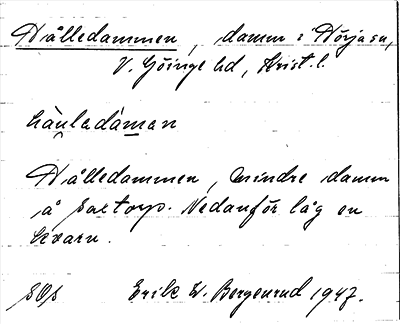 Hålledammen, damm i Hörja sn,
V. Göinge hd, Krist. l.
hàuladáman
Hålledammen, mindre damm
å Saxtorp. Nedanför låg en
kvarn.
SOS Erik W. Bergenrud 1947.